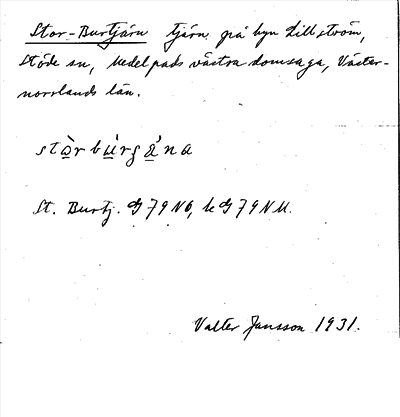 Stor-Burtjärn tjärn på byn Lillström,
Stöde sn, Medelpads västra domsaga, Väster-
norrlands län.
stòrbúrgǻna
St. Burtj. G79NÖ, k G79NU.
Valter Jansson 1931.